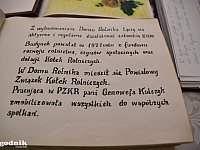 Z wybudowaniem Domu Rolnika łączy się
aktywna i regularna działalność członków ZGW
Budynek powstał w 1971 roku z funduszu
rozwoju rolnictwa, czynów społecznych oraz
dotacji Kółek Rolniczych.
W Domu Rolnika mieścił się Powiatowy
Związek Kółek Rolniczych.
Pracująca w PZKR pani Genowefa Kulczyk
zmobilizowała wszystkich do wspólnych
spotkań.